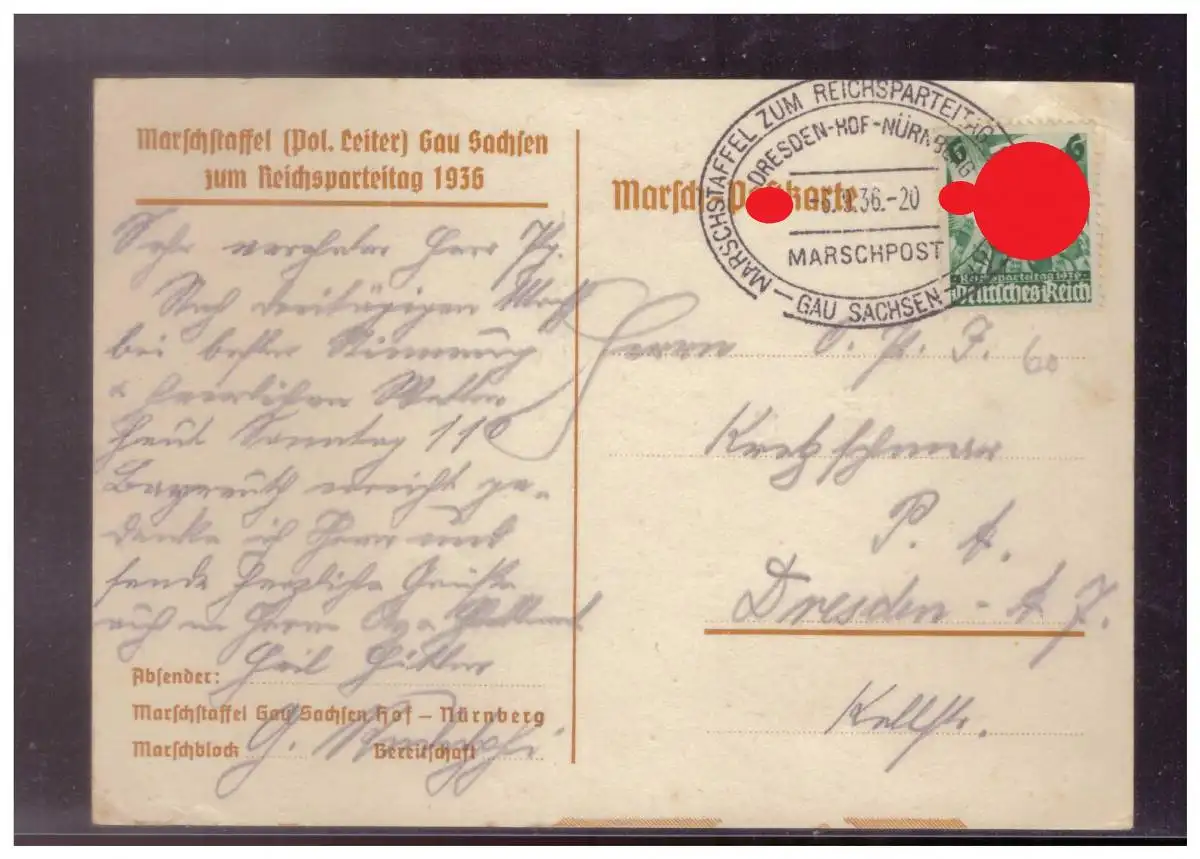 Marschstaffel (Pol. Leiter) Gau Sachsen
zum Reichsparteitag 1936
Sehr verehrter Herr Pg.
Nach dreitägigem Marsch
bei bester Stimmung
& herrlichem Wetter
heute Sonntag 11⁰
Bayreuth erreicht ge-
denke ich Ihrer und
sende herzliche Grüße
auch an Herrn
Heil Hitler
Absender:
Marschstaffel Gau Sachsen Hof – Nürnberg
Marschblock Bereitschaft
G.
Marsch-Postkarte
MARSCHSTAFFEL ZUM REICHSPARTEITAG
DRESDEN-HOF-NÜRNBERG
-6.9.36.-20
MARSCHPOST
GAU SACHSEN
6 6
Reichsparteitag 1936
Deutsches Reich
Herrn O. P. J.
60
Kretzschmar
P. A.
Dresden - A 7.